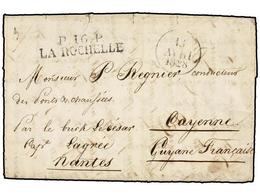 P. 16. P.
LA ROCHELLE
13
AVRIL
1828
Monsieur P Regnier conducteur
des Ponts & chaussées
Par le brick Le César
Cap.e Lagrée
Nantes
Cayenne
Guyane Française